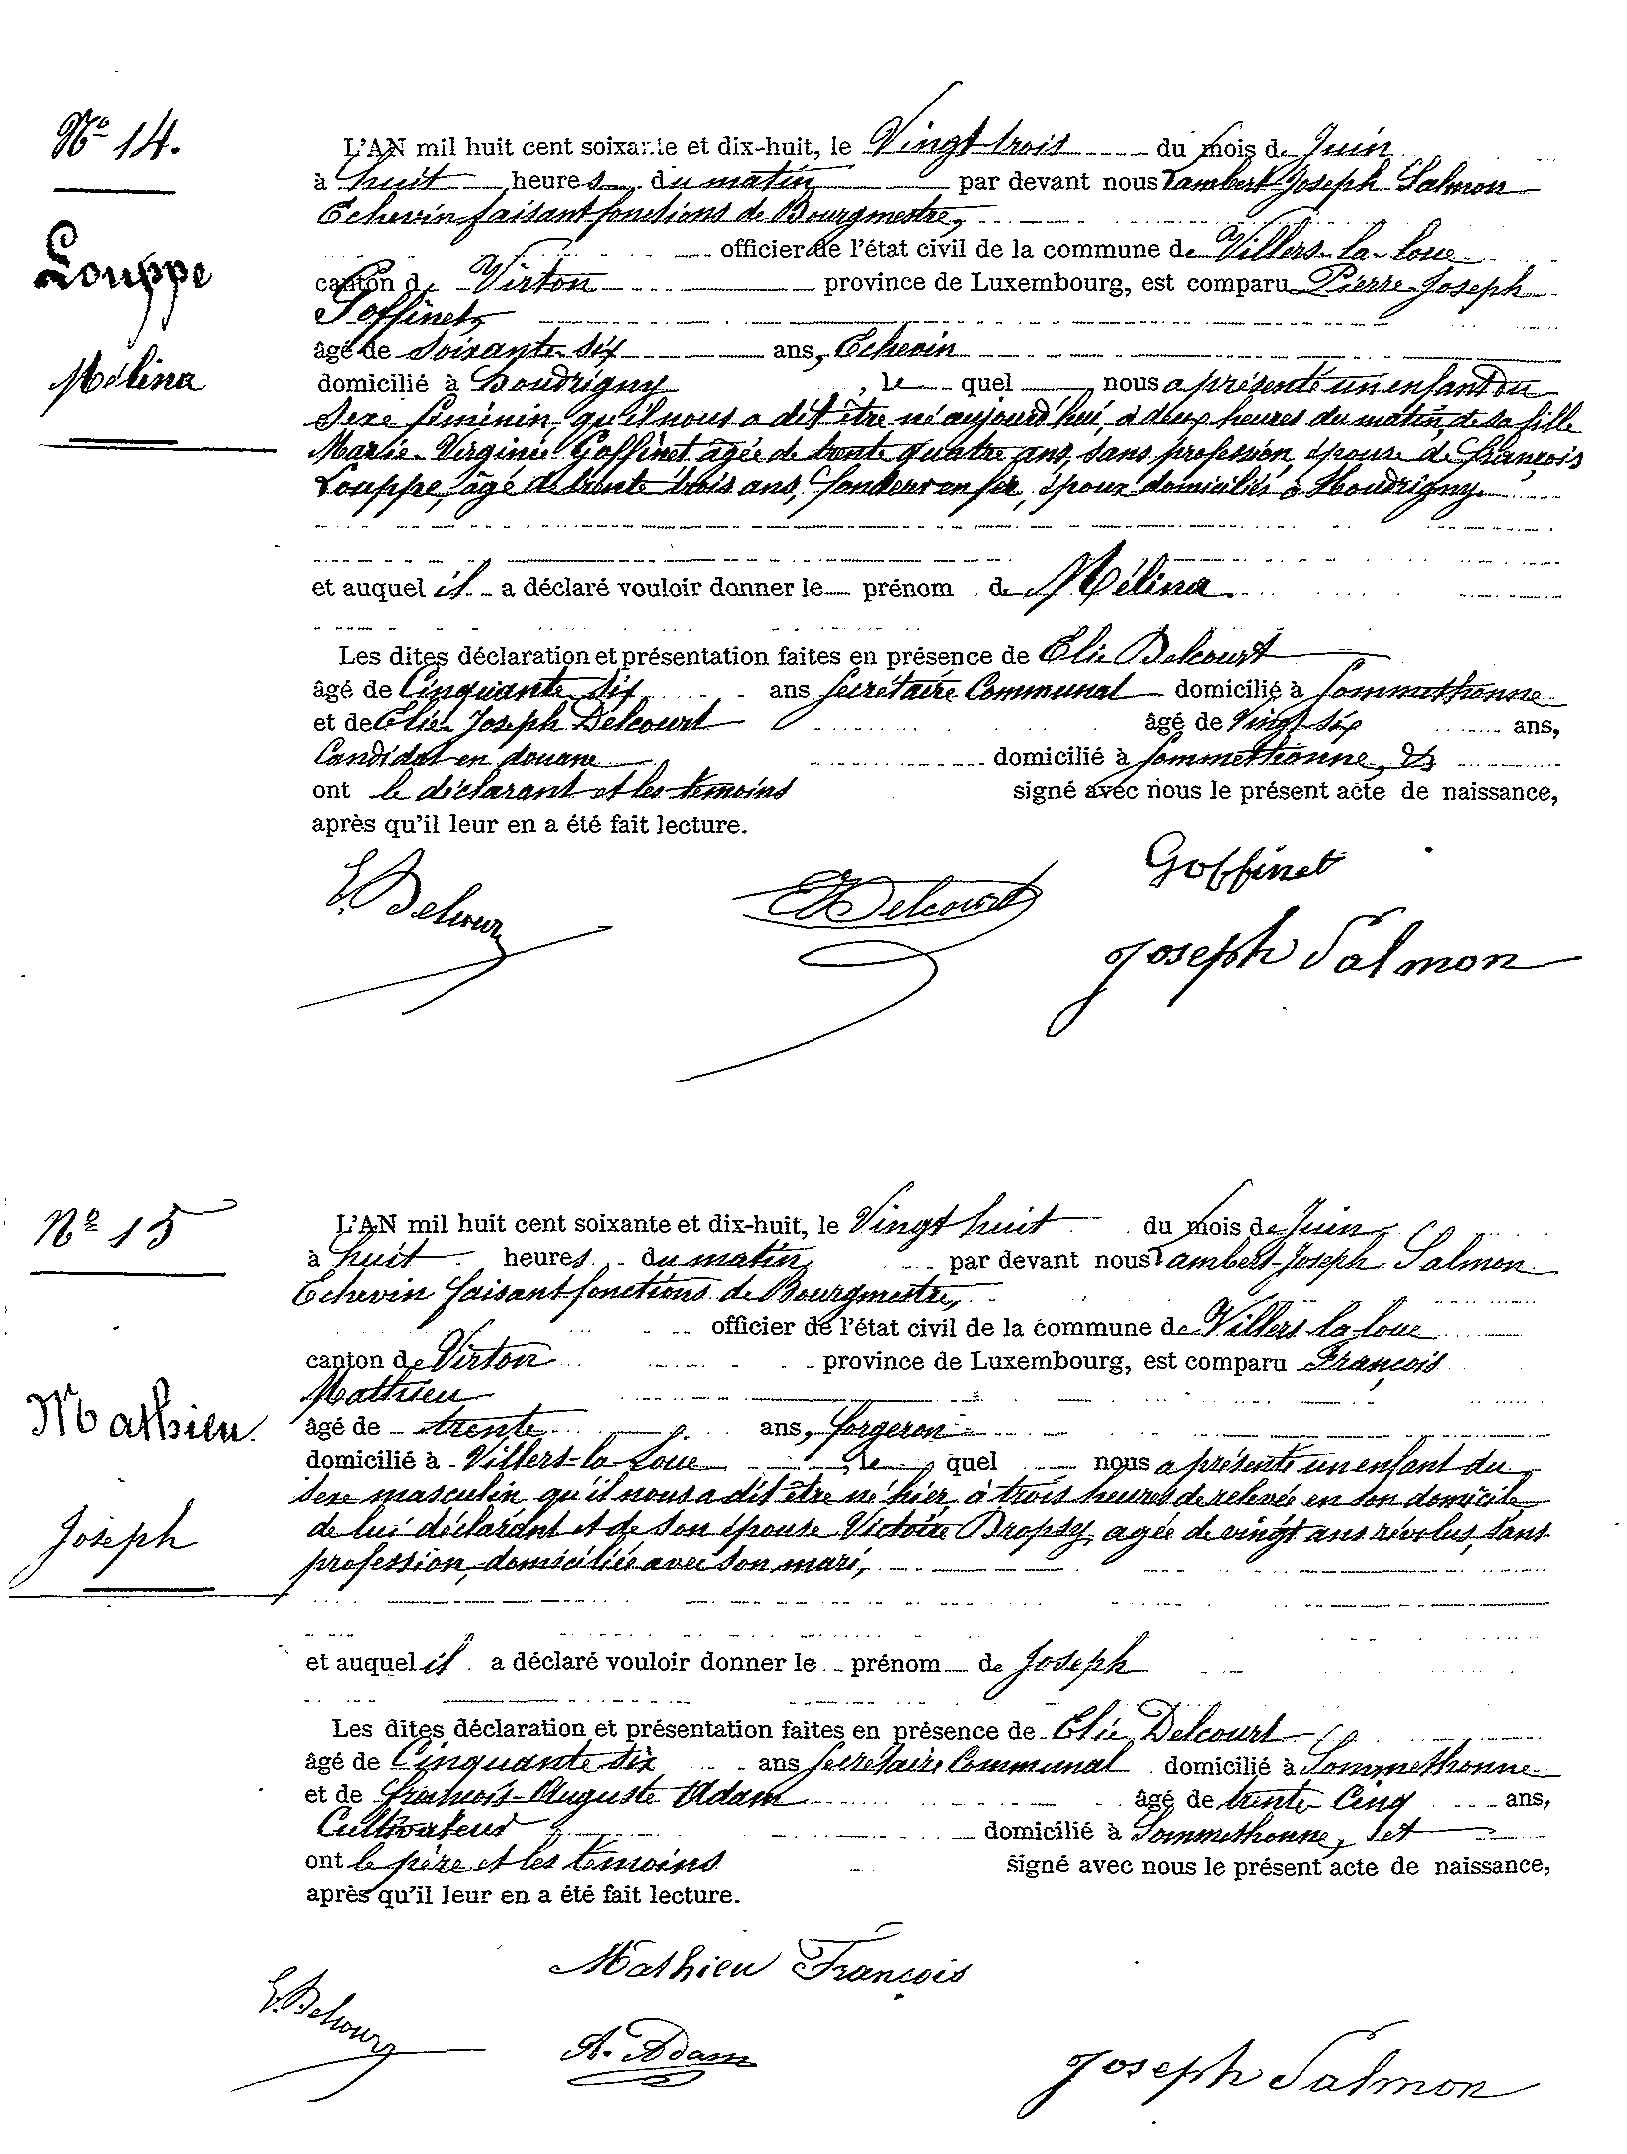 Nº 14.
Louppe
Mélina
L'AN mil huit cent soixante et dix-huit, le Vingt trois du mois de Juin
à huit heures du matin par devant nous Lambert-Joseph Salmon
Echevin faisant fonctions de Bourgmestre,
officier de l'état civil de la commune de Villers-la-loue
canton de Virton province de Luxembourg, est comparu Pierre-Joseph
Goffinet,
âgé de soixante-six ans, Echevin
domicilié à Houdrigny, le quel nous a présenté un enfant du
sexe féminin, qu'il nous a dit être né aujourd'hui, à deux heures du matin, de sa fille
Marie-Virginie Goffinet âgée de trente quatre ans, sans profession, épouse de François
Louppe, âgé de trente trois ans, fondeur en fer, époux domiciliés à Houdrigny
et auquel il a déclaré vouloir donner le prénom de Mélina.
Les dites déclaration et présentation faites en présence de Elie Delcourt
âgé de Cinquante six ans Secrétaire Communal domicilié à Sommethonne
et de Elie-Joseph Delcourt âgé de Vingt-six ans,
Candidat en douane domicilié à Sommethonne, &
ont le déclarant et les témoins signé avec nous le présent acte de naissance,
après qu'il leur en a été fait lecture.
Goffinet
E. Delcour
EJDelcourt
Joseph Salmon
Nº 15
Mathieu
Joseph
L'AN mil huit cent soixante et dix-huit, le Vingt huit du mois de Juin,
à huit heures du matin, par devant nous Lambert-Joseph Salmon
Echevin faisant fonctions de Bourgmestre,
officier de l'état civil de la commune de Villers-la-loue
canton de Virton province de Luxembourg, est comparu François
Mathieu
âgé de trente ans, forgeron
domicilié à Villers-la-Loue, le quel nous a présenté un enfant du
sexe masculin, qu'il nous a dit être né hier, à trois heures de relevée en son domicile
de lui déclarant et de son épouse Victoire Dropsy, agée de vingt ans révolus, sans
profession, domiciliée avec son mari,
et auquel il a déclaré vouloir donner le prénom de Joseph
Les dites déclaration et présentation faites en présence de Elie Delcourt
âgé de Cinquante six ans Secrétaire Communal domicilié à Sommethonne
et de François-Auguste Adam âgé de trente-Cinq ans,
Cultivateur domicilié à Sommethonne, et
ont le père et les témoins signé avec nous le présent acte de naissance,
après qu'il leur en a été fait lecture.
Mathieu François
E. Delcour
A. Adam
Joseph Salmon